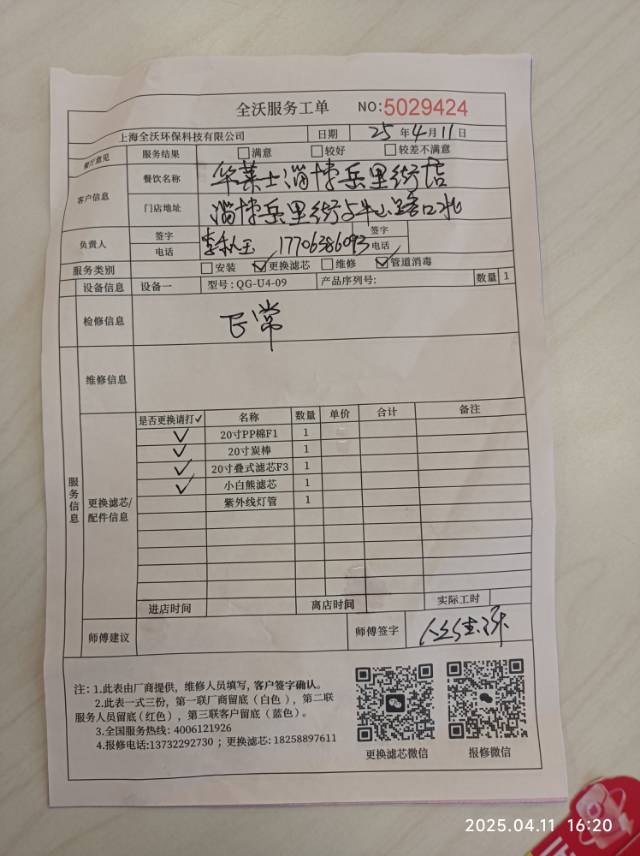 全沃服务工单 NO:5029424
上海全沃环保科技有限公司 日期 25 年 4 月 11 日
餐厅意见 服务结果 □满意 □较好 □较差不满意
客户信息 餐饮名称 华莱士淄博岳里街店
门店地址 淄博岳里街与牛山路口北
负责人 签字 签字
电话 17706386093 电话
服务类别 □安装 ☑更换滤芯 □维修 ☑管道消毒
设备信息 设备一 型号:QG-U4-09 产品序列号: 数量 1
检修信息 正常
维修信息
服务信息
更换滤芯/配件信息
是否更换请打✓ 名称 数量 单价 合计 备注
✓ 20寸PP棉F1 1
✓ 20寸炭棒 1
✓ 20寸叠式滤芯F3 1
✓ 小白熊滤芯 1
紫外线灯管 1
进店时间 离店时间 实际工时
师傅建议 师傅签字
注:1.此表由厂商提供,维修人员填写,客户签字确认。
2.此表一式三份,第一联厂商留底(白色),第二联
服务人员留底(红色),第三联客户留底(蓝色)。
3.全国服务热线:4006121926
4.报修电话:13732292730;更换滤芯:18258897611
更换滤芯微信 报修微信
2025.04.11 16:20